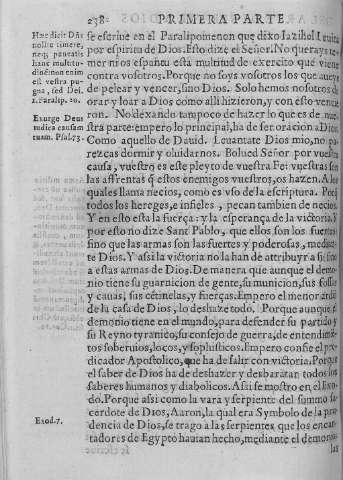 238 PRIMERA PARTE
Hæc dicit Dñs
nolite timere,
neq; paueatis
hanc multitu-
dinē non enim
est vestra pu-
gna, sed Dei.
2. Paralip. 20.
Exurge Deus
iudica causam
tuam. Psal. 73.
Exod. 7.
se escriue en el Paralipomenon que dixo Iazihel Leuita
por espiritu de Dios. Esto dize el Señor. No querays te-
mer ni os espantu esta multitud de exercito que viene
contra vosotros. Porque no soys vosotros los que aueys
de pelear y vencer, sino Dios. Solo hemos nosotros de
orar y loar a Dios como alli hizieron, y con esto vencie
ron. No dexando tampoco de hazer lo que es de nue-
stra parte: empero lo principal, ha de ser oracion a Dios.
Como aquello de Dauid. Leuantate Dios mio, no pa-
rezcas dormir y oluidarnos. Bolued Señor por vuestra
causa, vuestro es este pleyto de vuestra Fe: vuestras son
las affrentas que estos enemigos vuestros, os hazen. A los
quales llama necios, como es vso de la escriptura. Porque
todos los hereges, e infieles, pecan tambien de necios.
Y en esto esta la fuerça: y la esperança de la victoria. Y
por esto no dize Sant Pablo, que ellos son los fuertes
sino que las armas son las fuertes y poderosas, median-
te Dios. Y assi la victoria no la han de attribuyr a si sino
a estas armas de Dios. De manera que aunque el demo-
nio tiene su guarnicion de gente, su municion, sus fossos
y cauas, sus cētinelas, y fuerças. Empero el menor criado
de la casa de Dios, lo deshaze todo. Porque aunque el
demonio tiene en el mundo, para defender su partido y
su Reyno tyranico, su consejo de guerra, de entendimiē-
tos soberuios, locos, y sophisticos. Empero confie el pre-
dicador Apostolico, que ha de salir con victoria. Porque
el saber de Dios ha de deshazer y desbaratan todos los
saberes humanos y diabolicos. Assi se mostro en el Exo-
do. Porque assi como la vara y serpiente del summo sa-
cerdote de Dios, Aaron, la qual era Symbolo de la pru-
dencia de Dios, se trago a las serpientes que los encan-
tadores de Egypto hauian hecho, mediante el demonio